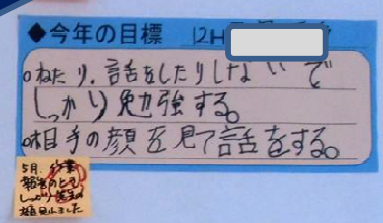 ◆今年の目標 12H
○ねたり、話をしたりしないで
しっかり勉強する。
○相手の顔を見て話をする。
5月
しっかり先生の